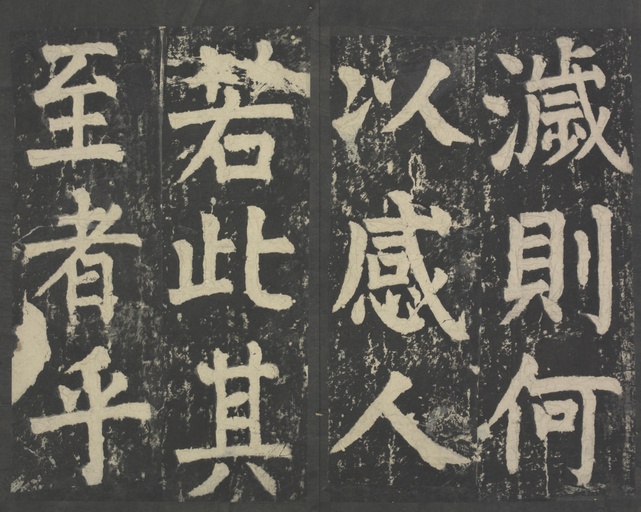 濊則何
以感人
若此其
至者乎